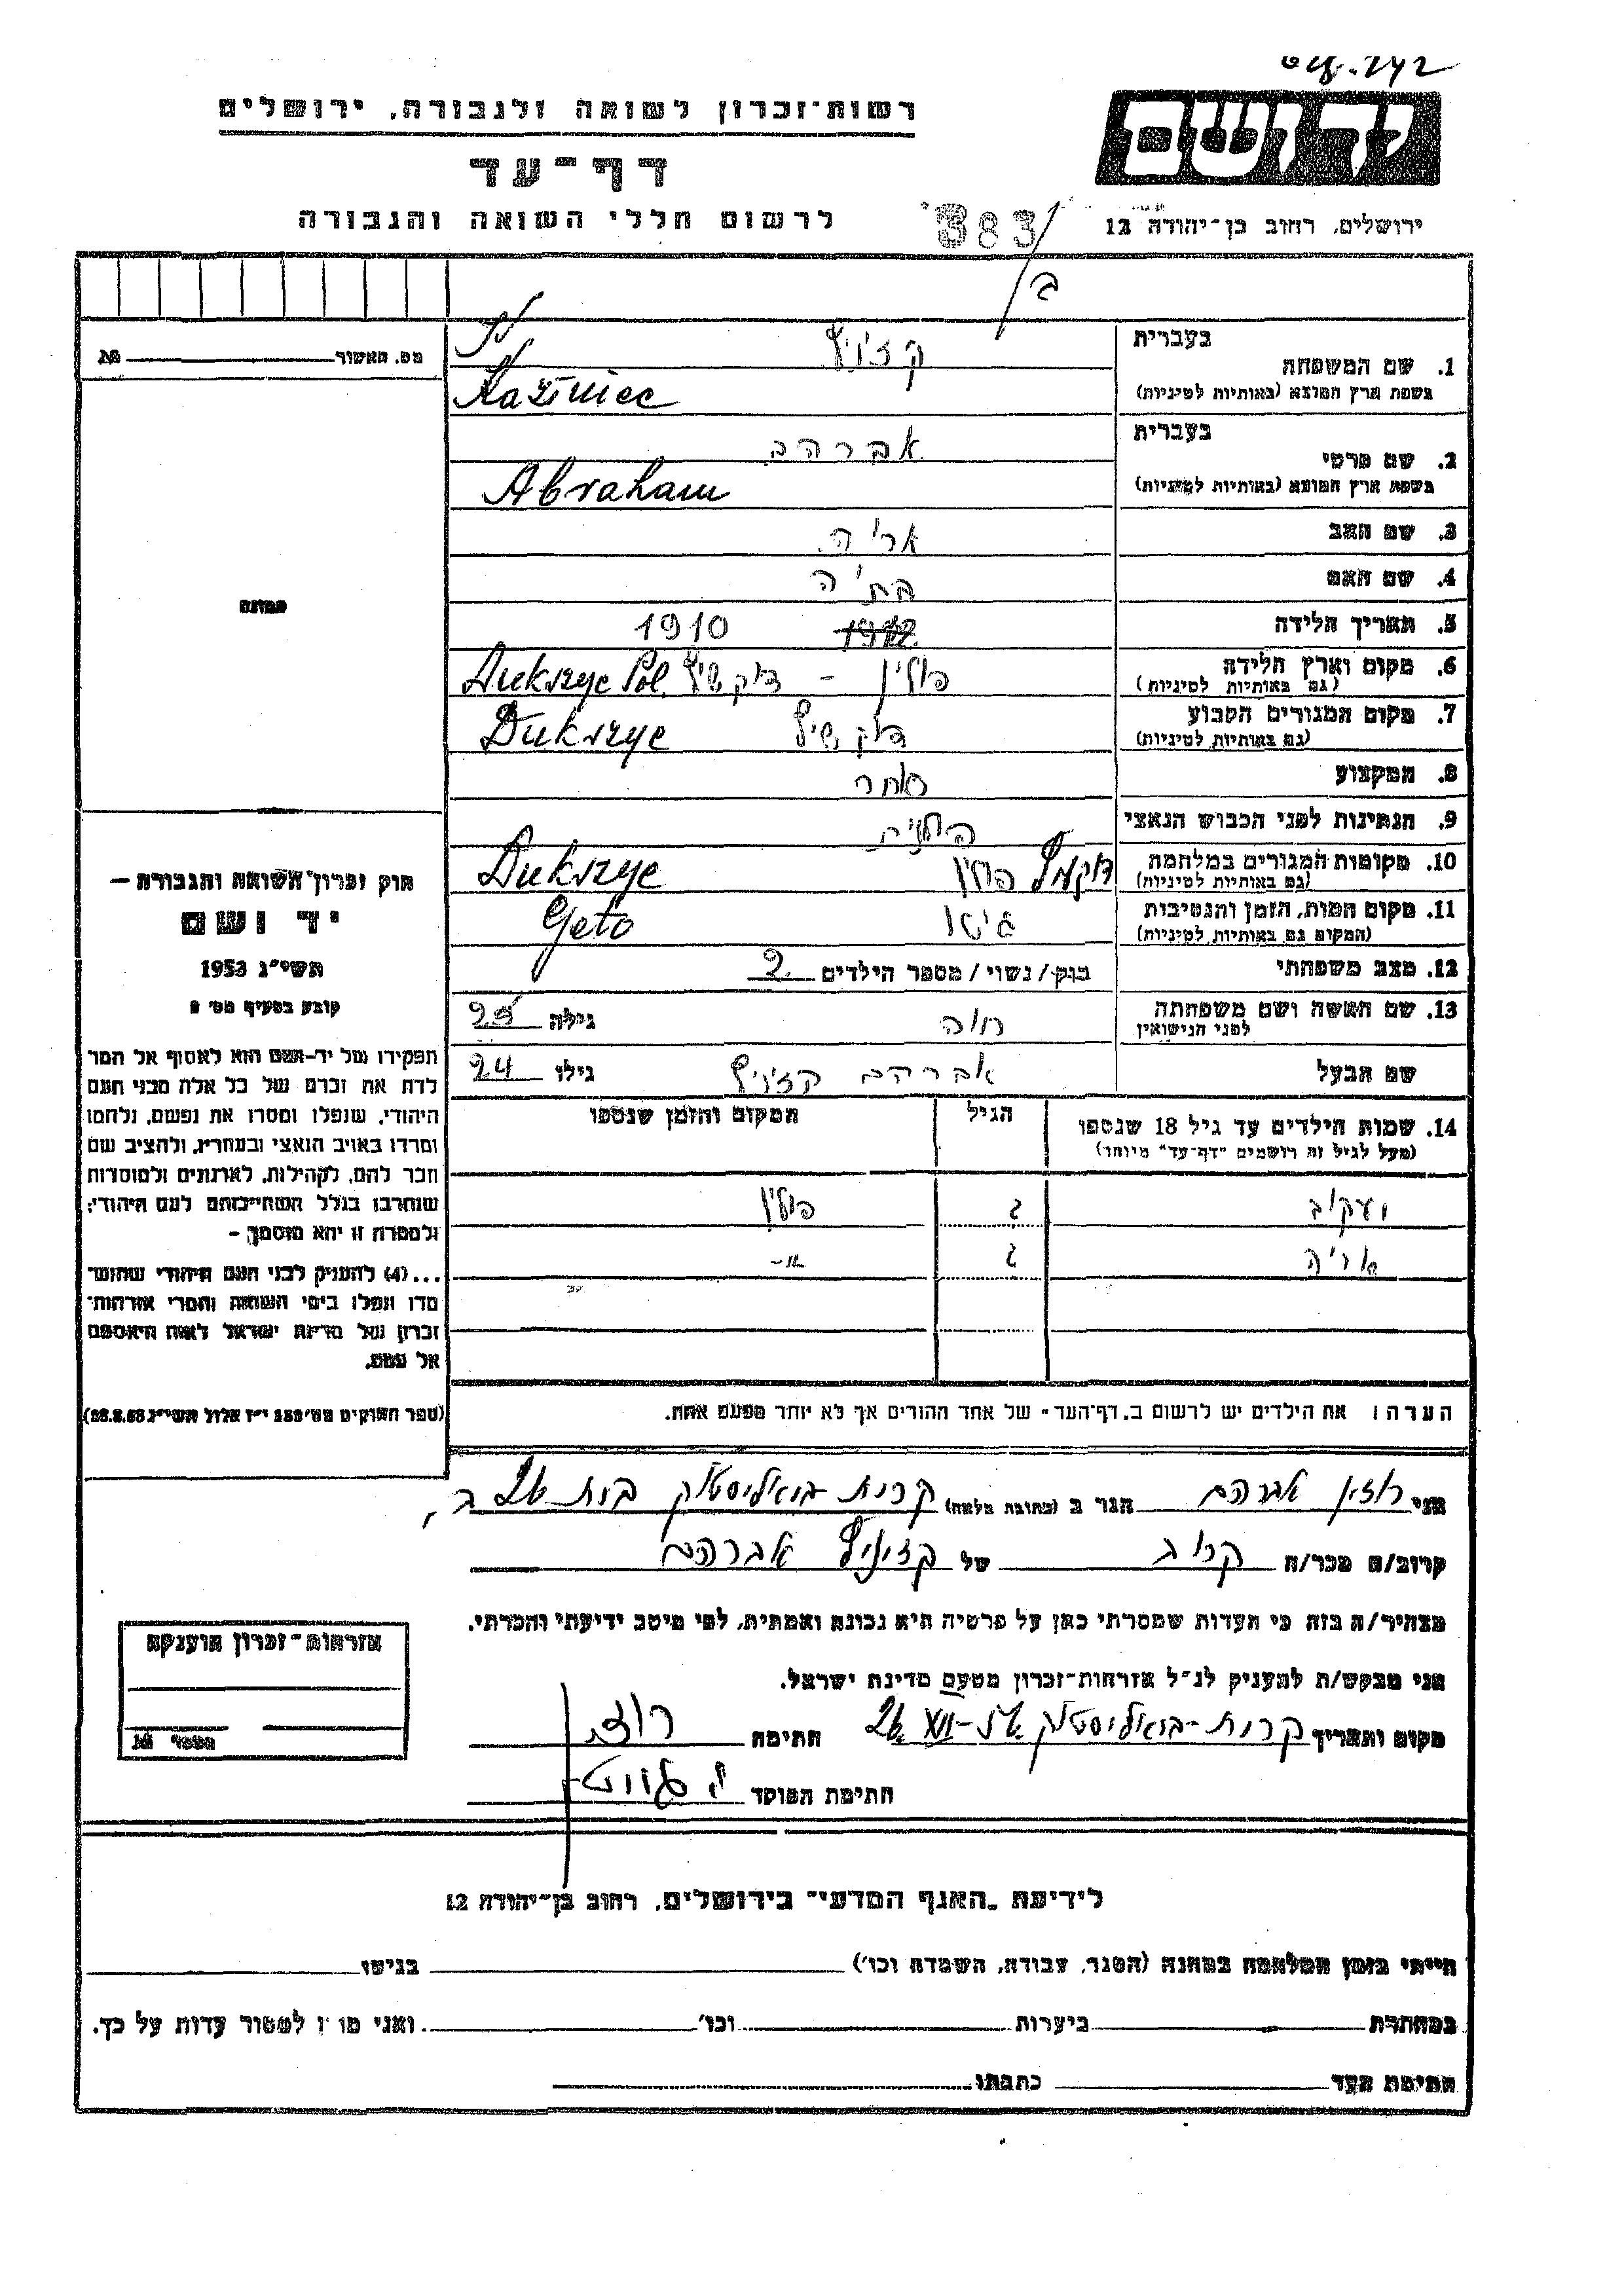 רשות־זכרון לשואה ולגבורה, ירושלים
יד ושם
דף־עד
לרשום חללי השואה והגבורה
383
ירושלים, רחוב בן־יהודה 12
ב
מס. האשור №
בעברית
1. שם המשפחה
בשפת ארץ המוצא (באותיות לטיניות)
Kaziniec
בעברית אברהם
2. שם פרטי
בשפת ארץ המוצא (באותיות לטיניות) Abraham
3. שם האב אריה
4. שם האם בתיה
5. תאריך הלידה 1912 1910
6. מקום וארץ הלידה פולין - דוקשיץ Dukszyc Pol.
(גם באותיות לטיניות)
7. מקום המגורים הקבוע דוקשיץ Dukszyc
(גם באותיות לטיניות)
8. המקצוע סוחר
9. הנתינות לפני הכבוש הנאצי פולנית
10. מקומות המגורים במלחמה פולין Dukszyc
(גם באותיות לטיניות)
11. מקום המות, הזמן והנסיבות גיטו Geto
(המקום גם באותיות לטיניות)
12. מצב משפחתי בנק/נשוי/ מספר הילדים 2
13. שם האשה ושם משפחתה חוה גילה 25
לפני הנישואין
שם הבעל אברהם קזיניץ גילו 24
14. שמות הילדים עד גיל 18 שנספו הגיל המקום והזמן שנספו
(מעל לגיל זה רושמים "דף־עד" מיוחד)
יעקוב 2 פולין
אריה 2 -"-
הערה: את הילדים יש לרשום ב„דף־העד" של אחד ההורים אך לא יותר מפעם אחת.
תמונה
חוק זכרון השואה והגבורה —
יד ושם
תשי"ג 1953
קובע בסעיף מס' 2
תפקידו של יד־ושם הוא לאסוף אל המו־
לדת את זכרם של כל אלה מבני העם
היהודי, שנפלו ומסרו את נפשם, נלחמו
ומרדו באויב הנאצי ובעוזריו, ולהציב שם
וזכר להם, לקהילות, לארגונים ולמוסדות
שנחרבו בגלל השתייכותם לעם היהודי;
ולמטרה זו יהא מוסמך —
...(4) להעניק לבני העם היהודי שהוש־
מדו ונפלו בימי השואה והמרי אזרחות־
זכרון של מדינת ישראל לאות היאספם
אל עמם.
(ספר החוקים מס' 132 י"ז אלול תשי"ג 28.8.53)
אני רוזן אברהם הגר ב (כתובת מלאה) קרית-ביאליסטוק
קרוב/ה מכר/ה קרוב של קזיניץ אברהם
מצהיר/ה בזה כי העדות שמסרתי כאן על פרטיה היא נכונה ואמתית, לפי מיטב ידיעתי והכרתי.
אני מבקש/ת להעניק לנ"ל אזרחות־זכרון מטעם מדינת ישראל.
מקום ותאריך קרית-ביאליסטוק חתימה
חתימת הפוקד
אזרחות־זכרון הוענקה
מספר №
לידיעת „האגף המדעי" בירושלים, רחוב בן־יהודה 12
הייתי בזמן המלחמה במחנה (הסגר, עבודה, השמדה וכו') בגיטו
במחתרת ביערות וכו' ואני מוכן למסור עדות על כך.
חתימת העד כתבתו